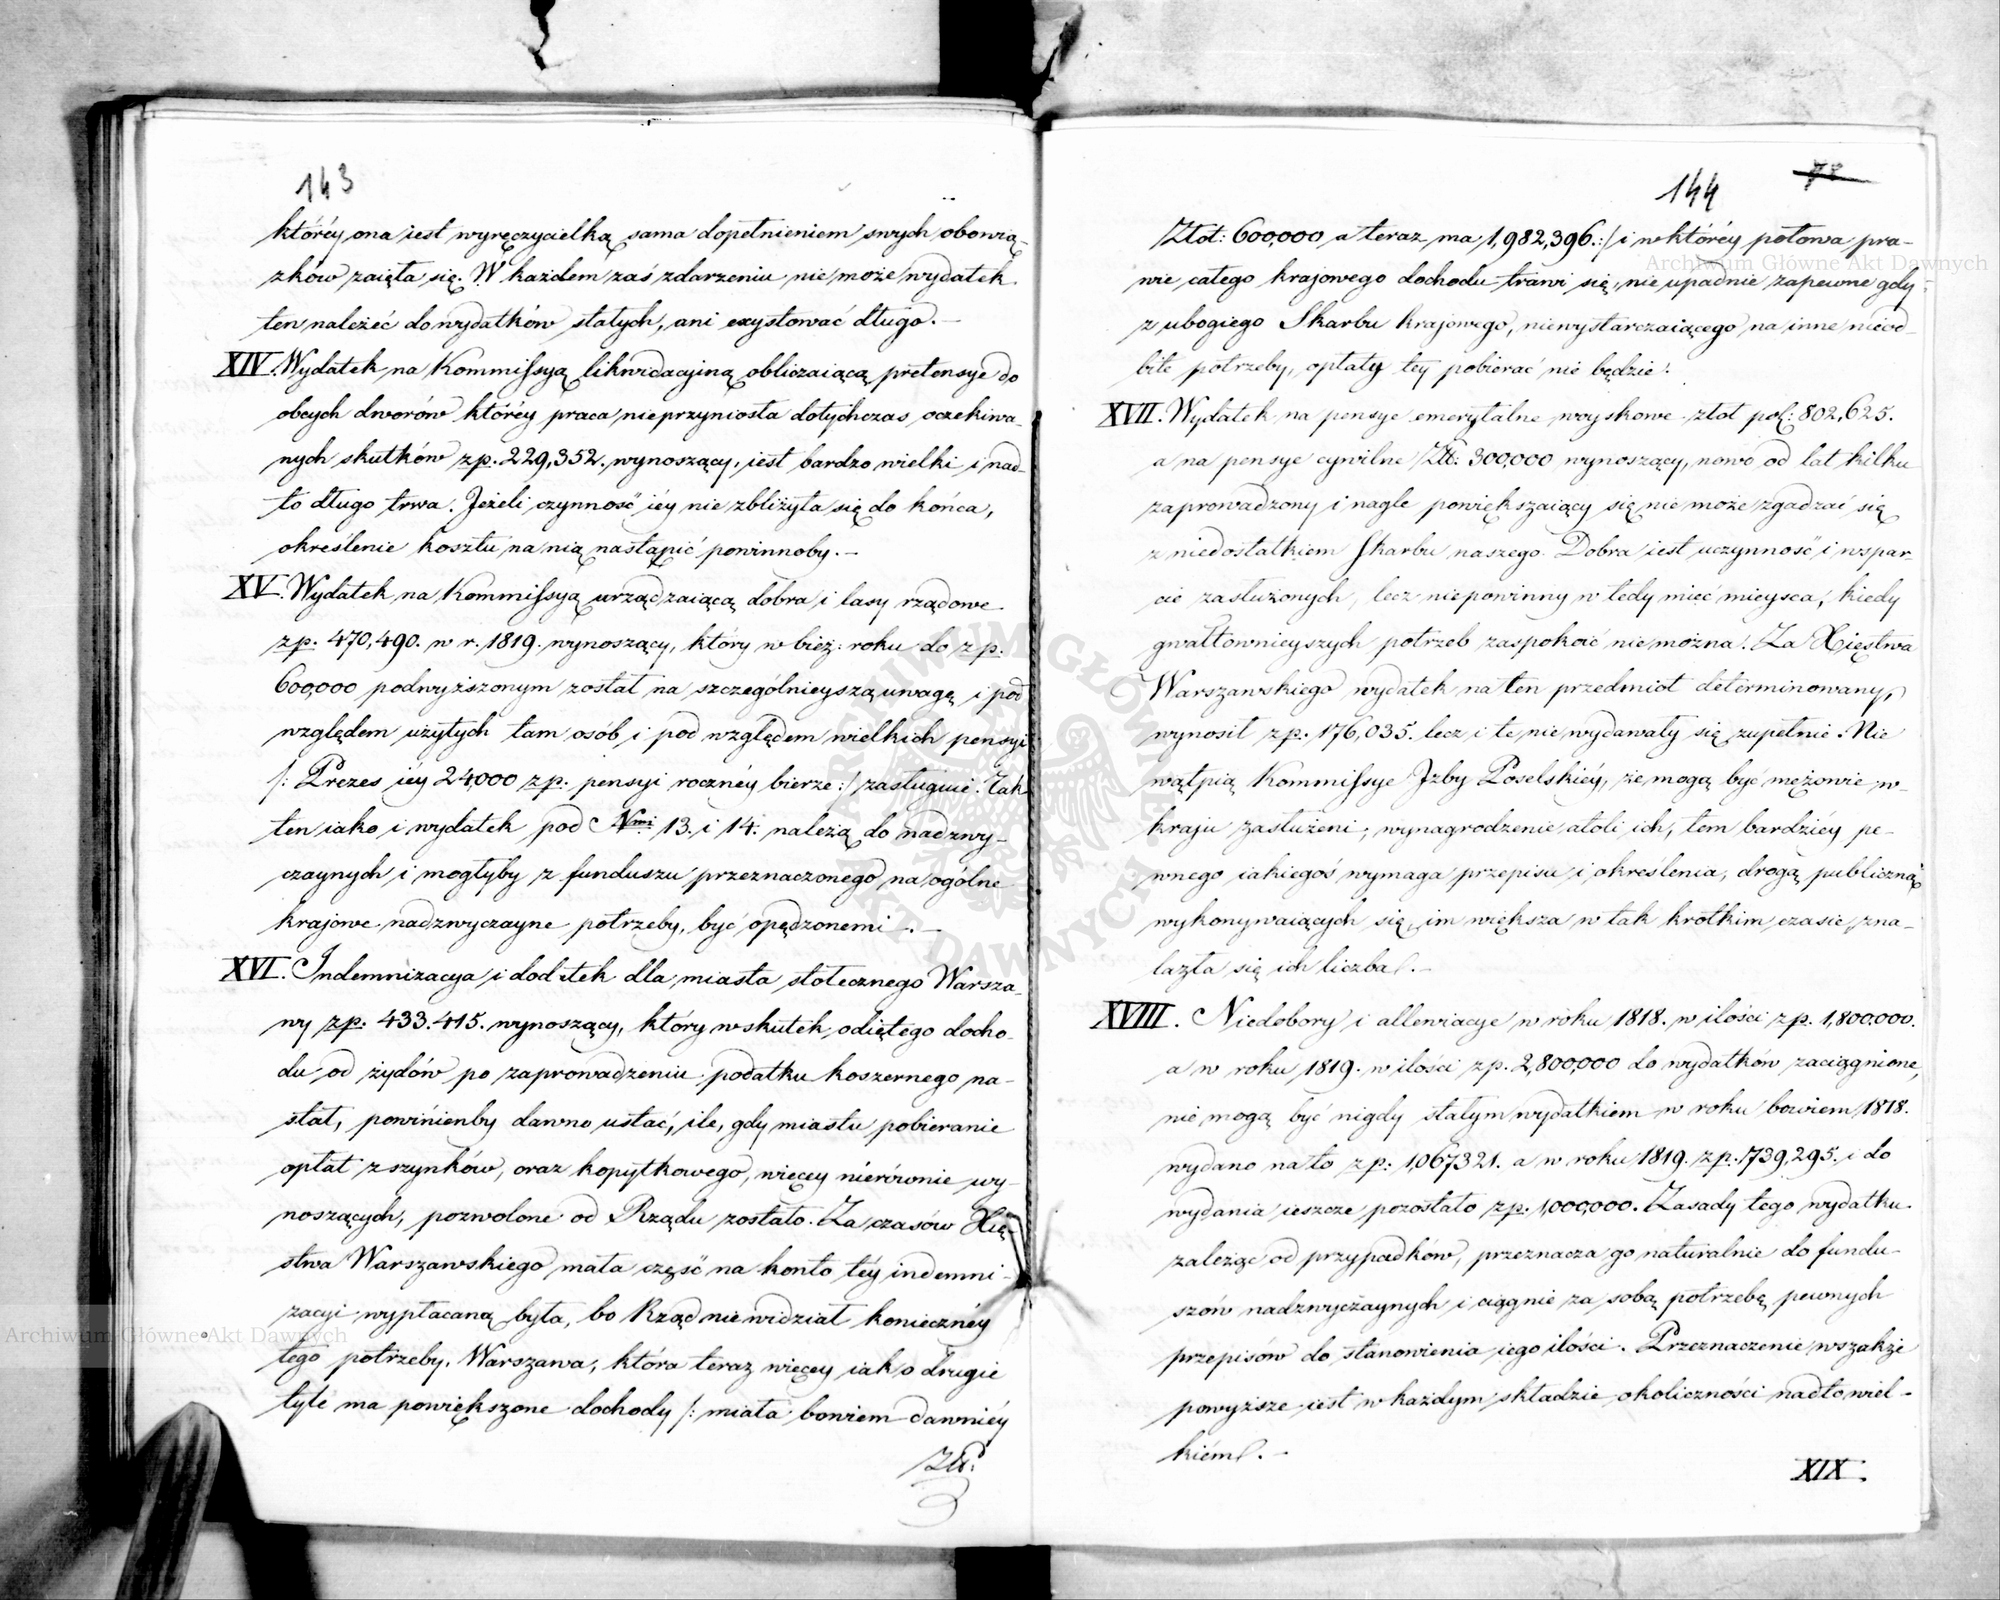 143
któréy ona iest wyręczycielką sama dopełnieniem swych obowią-
zków zaięła się. W każdem zaś zdarzeniu nie może wydatek
ten należeć do wydatków stałych, ani exystować długo. —
XIV. Wydatek na Kommissyą likwidacyiną obliczaiącą pretensye do
obcych dworów któréy praca nieprzyniosła dotychczas oczekiwa-
nych skutków zp. 229,352. wynoszący, iest bardzo wielki i nad-
to długo trwa. Jeżeli czynność iéy nie zbliżyła się do końca,
określenie kosztu na nią nastąpić powinnoby. —
XV. Wydatek na Kommissyą urządzaiącą dobra i lasy rządowe
zp: 470,490. w r. 1819. wynoszący, który w bież: roku do zp.
600,000 podwyższonym został na szczególnieyszą uwagę i pod
względem użytych tam osób i pod względem wielkich pensyi
/: Prezes iéy 24,000 zp: pensyi rocznéy bierze :/ zasługuie. Tak
ten iako i wydatek pod Nmi 13. i 14: należą do nadzwy-
czaynych i mogłyby z funduszu przeznaczonego na ogólne
krajowe nadzwyczayne potrzeby, być opędzonemi . —
XVI. Indemnizacya i dodatek dla miasta stołecznego Warsza-
wy zp: 433.415. wynoszący, który w skutek odiętego docho-
du od żydów po zaprowadzeniu podatku koszernego na-
stał, powinienby dawno ustać, ile, gdy miastu pobieranie
opłat z szynków, oraz kopytkowego, więcey nierównie wy-
noszących, pozwolone od Rządu zostało. Za czasów Xię-
stwa Warszawskiego mała część na konto téy indemni-
zacyi wypłacaną była, bo Rząd nie widział koniecznéy
tego potrzeby. Warszawa, która teraz więcey iak o drugie
tyle ma powiększone dochody /: miała bowiem dawniéy
Złł:
144
Złot: 600,000 a teraz ma 1,982,396. :/ i w któréy połowa pra-
wie całego krajowego dochodu trawi się, nie upadnie zapewne gdy
z ubogiego Skarbu krajowego, niewystarczaiącego na inne nieod-
bite potrzeby, opłaty téy pobierać nie będzie.
XVII. Wydatek na pensye emerytalne woyskowe złot pol: 802,625.
a na pensye cywilne Złł: 300,000 wynoszący, nowo od lat kilku
zaprowadzony i nagle powiększaiący się nie może zgadzać się
z niedostatkiem Skarbu naszego. Dobra iest uczynność i wspar-
cie zasłużonych, lecz niepowinny w tedy mieć mieysca, kiedy
gwałtownieyszych potrzeb zaspokoić nie można. Za Xięstwa
Warszawskiego wydatek na ten przedmiot determinowany,
wynosił zp. 176,035. lecz i te nie wydawały się zupełnie. Nie
wątpią Kommissye Jzby Poselskiéy, że mogą być mężowie w
kraju zasłużeni; wynagrodzenie atoli ich, tem bardziéy pe-
wnego iakiegoś wymaga przepisu i określenia, drogą publiczną
wykonywaiących się, im większa w tak krótkim czasie zna-
lazła się ich liczba. —
XVIII. Niedobory i allewiacye w roku 1818. w ilości zp. 1,800,000.
a w roku 1819. w ilości zp. 2,800,000 do wydatków zaciągnione,
nie mogą być nigdy stałym wydatkiem w roku bowiem 1818.
wydano na to zp: 1,067321. a w roku 1819. zp. 1739,295. i do
wydania ieszcze pozostało zp. 1,000,000. Zasady tego wydatku
zależąc od przypadków, przeznacza go naturalnie do fundu-
szów nadzwyczaynych i ciągnie za sobą potrzebę pewnych
przepisów do stanowienia iego ilości. Przeznaczenie wszakże
powyższe iest w każdym składzie okoliczności nadto wiel-
kiém. —
XIX.
Archiwum Główne Akt Dawnych
Archiwum Główne Akt Dawnych
ARCHIWUM GŁÓWNE AKT DAWNYCH